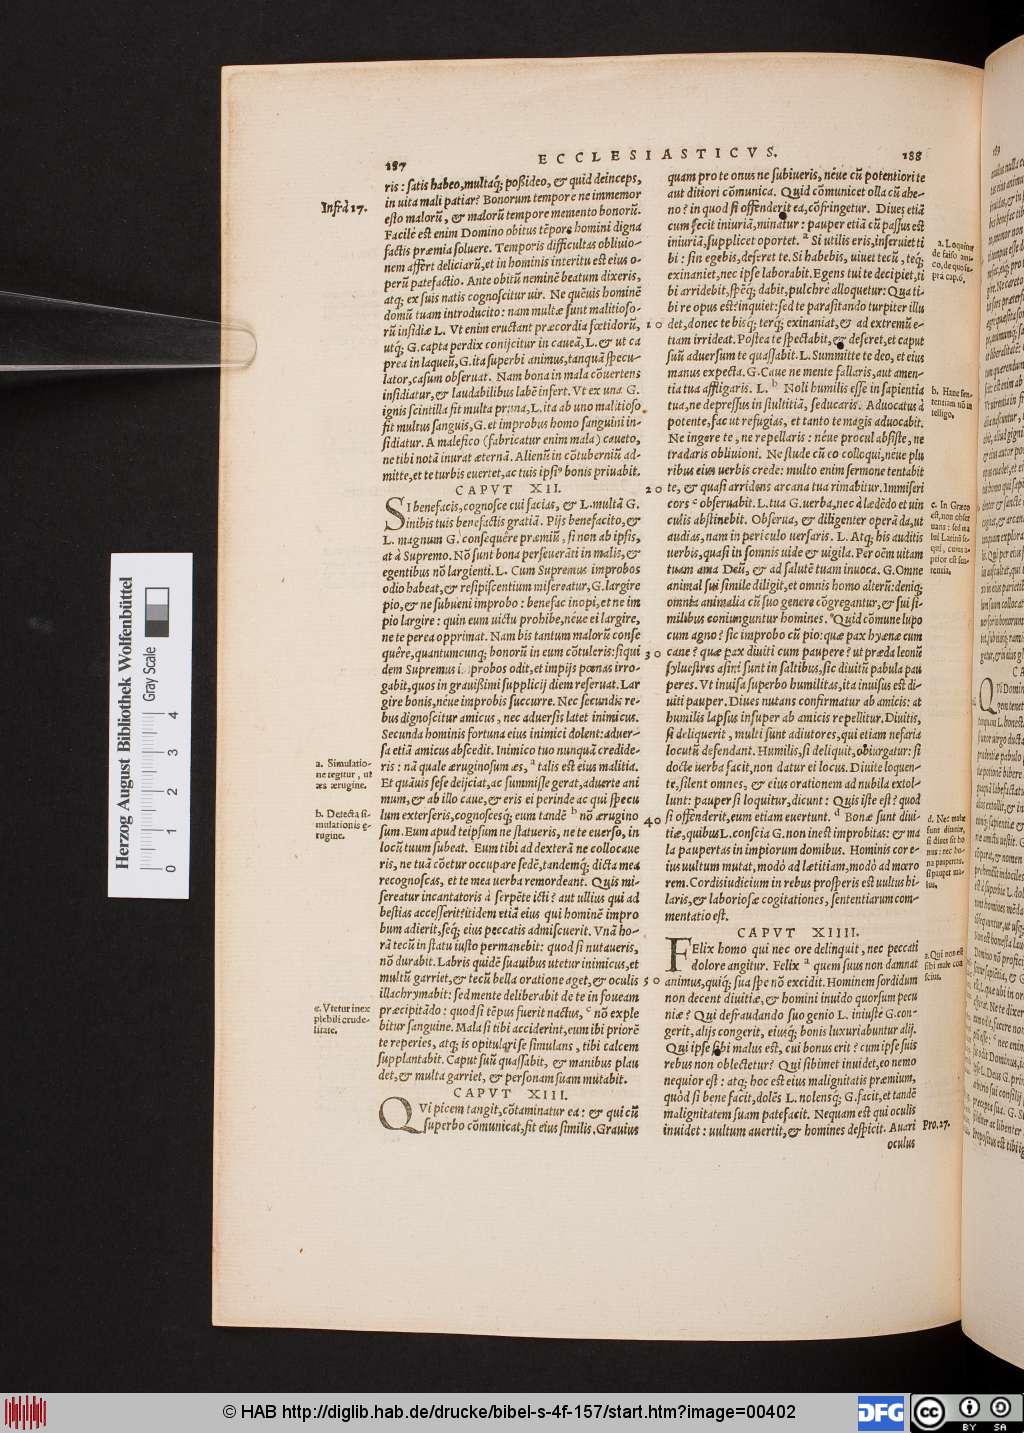 187
ECCLESIASTICVS.
188
ris: satis habeo, multaq́; possideo, & quid deinceps,
in uita mali patiar? Bonorum tempore ne immemor
esto malorũ, & malorũ tempore memento bonorũ.
Facilè est enim Domino obitus tẽpore homini digna
factis præmia soluere. Temporis difficultas obliuio-
nem affert deliciarũ, et in hominis interitu est eius o-
perũ patefactio. Ante obitũ neminẽ beatum dixeris,
atq; ex suis natis cognoscitur uir. Ne quẽuis hominẽ
domũ tuam introducito: nam multæ sunt malitioso-
rũ insidiæ L. Vt enim eructant præcordia fœtidorũ,
utq; G. capta perdix conijcitur in caueã, L. & ut ca
prea in laqueũ, G. ita superbi animus, tanquã specu-
lator, casum obseruat. Nam bona in mala cõuertens
insidiatur, & laudabilibus labẽ insert. Vt ex una G.
ignis scintilla fit multa pruna, L. ita ab uno malitioso
fit multus sanguis, G. et improbus homo sanguini in-
sidiatur. A malefico (fabricatur enim mala) caueto,
ne tibi notã inurat æternã. Alienũ in cõtuberniũ ad-
mitte, et te turbis euertet, ac tuis ipsiꝰ bonis priuabit.
CAPVT XII.
SI benefacis, cognosce cui facias, & L. multã G.
inibis tuis benefactis gratiã. Pijs benefacito, &
L. magnum G. consequêre præmiũ, si non ab ipsis,
at à Supremo. Nõ sunt bona perseuerãti in malis, &
egentibus nõ largienti. L. Cum Supremus improbos
odio habeat, & resipiscentium misereatur, G. largire
pio, & ne subueni improbo: benefac inopi, et ne im
pio largire: quin eum uictu prohibe, néue ei largire,
ne te perea opprimat. Nam bis tantum malorũ conse
quêre, quantumcunq; bonorũ in eum cõtuleris: siqui
dem Supremus improbos odit, et impijs pœnas irro-
gabit, quos in grauißimi supplicij diem reseruat. Lar
gire bonis, néue improbis succurre. Nec secundis re-
bus dignoscitur amicus, nec aduersis latet inimicus.
Secunda hominis fortuna eius inimici dolent: aduer-
sa etiã amicus abscedit. Inimico tuo nunquã credide-
ris: nã quale æruginosum æs, a talis est eius malitia.
Et quãuis sese deijciat, ac summisse gerat, aduerte ani
mum, & ab illo caue, & eris ei perinde ac qui specu
lum exterseris, cognoscesq́; eum tandẽ b nõ ærugino
sum. Eum apud teipsum ne statueris, ne te euerso, in
locũ tuum subeat. Eum tibi ad dexterã ne collocaue
ris, ne tuã cõetur occupare sedẽ, tandemq́; dicta mea
recognoscas, et te mea uerba remordeant. Quis mi-
sereatur incantatoris à serpẽte icti? aut ullius qui ad
bestias accesserit? itidem etiã eius qui hominẽ impro
bum adierit, seq́; eius peccatis admiscuerit. Vnã ho-
rã tecũ in statu iusto permanebit: quod si nutaueris,
nõ durabit. Labris quidẽ suauibus utetur inimicus, et
multũ garriet, & tecũ bella oratione aget, & oculis
illachrymabit: sed mente deliberabit de te in foueam
præcipitãdo: quod si tẽpus fuerit nactus, c nõ exple
bitur sanguine. Mala si tibi acciderint, eum ibi priorẽ
te reperies, atq; is opitulari se simulans, tibi calcem
supplantabit. Caput suũ quassabit, & manibus plau
det, & multa garriet, & personam suam mutabit.
CAPVT XIII.
QVi picem tangit, cõtaminatur ea: & qui cũ
superbo cõmunicat, fit eius similis. Grauius
Infrà 17.
a. Simulatio-
ne tegitur, ut
æs ærugine.
b. Detecta si-
mulationis ę-
rugine.
c. Vtetur inex
plebili crude-
litate.
10
20
30
40
50
quam pro te onus ne subiueris, néue cũ potentiori te
aut ditiori cõmunica. Quid cõmunicet olla cũ ahe-
no? in quod si offenderit ea, cõfringetur. Diues etiã
cum fecit iniuriã, minatur: pauper etiã cũ passus est
iniuriã, supplicet oportet. a Si utilis eris, inseruiet ti
bi: sin egebis, deseret te. Si habebis, uiuet tecũ, teq́;
exinaniet, nec ipse laborabit. Egens tui te decipiet, ti
bi arridebit, spẽq́; dabit, pulchrè alloquetur: Qua ti-
bi re opus est? inquiet: sed te parasitando turpiter illu
det, donec te bisq́; terq́; exinaniat, & ad extremũ e-
tiam irrideat. Postea te spectabit, & deseret, et caput
suũ aduersum te quassabit. L. Summitte te deo, et eius
manus expecta. G. Caue ne mente fallaris, aut amen-
tia tua affligaris. L. b Noli humilis esse in sapientia
tua, ne depressus in stultitiã, seducaris. Aduocatus à
potente, fac ut refugias, et tanto te magis aduocabit.
Ne ingere te, ne repellaris: néue procul absiste, ne
tradaris obliuioni. Ne stude cũ eo colloqui, néue plu
ribus eius uerbis crede: multo enim sermone tentabit
te, & quasi arridens arcana tua rimabitur. Immiseri
cors c obseruabit. L. tua G. uerba, nec à lædẽdo et uin
culis abstinebit. Obserua, & diligenter operã da, ut
audias, nam in periculo uersaris. L. Atq; his auditis
uerbis, quasi in somnis uide & uigila. Per oẽm uitam
tuam ama Deũ, & ad salutẽ tuam inuoca. G. Omne
animal sui simile diligit, et omnis homo alterũ: deniq;
omnia animalia cũ suo genere cõgregantur, & sui si-
milibus coniunguntur homines. Quid cõmune lupo
cum agno? sic improbo cũ pio: quæ pax hyænæ cum
cane? quæ pax diuiti cum paupere? ut præda leonũ
syluestres asini sunt in saltibus, sic diuitũ pabula pau
peres. Vt inuisa superbo humilitas, ita inuisus est di-
uiti pauper. Diues nutans confirmatur ab amicis: at
humilis lapsus insuper ab amicis repellitur. Diuitis,
si deliquerit, multi sunt adiutores, qui etiam nefaria
locutũ defendant. Humilis, si deliquit, obiurgatur: si
docte uerba facit, non datur ei locus. Diuite loquen-
te, silent omnes, & eius orationem ad nubila extol-
lunt: pauper si loquitur, dicunt: Quis iste est? quod
si offenderit, eum etiam euertunt. d Bonæ sunt diui-
tiæ, quibus L. conscia G. non inest improbitas: & ma
la paupertas in impiorum domibus. Hominis cor e-
ius uultum mutat, modò ad lætitiam, modò ad mœro
rem. Cordis iudicium in rebus prosperis est uultus hi-
laris, & laboriosæ cogitationes, sententiarum com-
mentatio est.
CAPVT XIIII.
FElix homo qui nec ore delinquit, nec peccati
dolore angitur. Felix a quem suus non damnat
animus, quiq́; sua spe nõ excidit. Hominem sordidum
non decent diuitiæ, & homini inuido quorsum pecu
niæ? Qui defraudando suo genio L. iniuste G. con-
gerit, alijs congerit, eiusq́; bonis luxuriabuntur alij.
Qui ipse sibi malus est, cui bonus erit? cum ipse suis
rebus non oblectetur? Qui sibimet inuidet, eo nemo
nequior est: atq; hoc est eius malignitatis præmium,
quòd si bene facit, dolẽs L. nolensq́; G. facit, et tandẽ
malignitatem suam patefacit. Nequam est qui oculis
inuidet: uultum auertit, & homines despicit. Auari
oculus
a. Loquitur
de falso ami-
co, de quo su-
prà cap. 6.
b. Hanc sen-
tentiam nõ in
telligo.
c. In Græco
est, non obser
uans: sed ma
lui Latinũ se-
qui, cuius a-
ptior est sen-
tentia.
d. Nec malæ
sunt diuitiæ,
si diues sit bo
nus: nec bo-
na paupertas,
si pauper ma-
lus.
a. Qui non est
sibi male con
scius.
Pro. 27.
Herzog August Bibliothek Wolfenbüttel
Gray Scale
0 1 2 3 4
© HAB http://diglib.hab.de/drucke/bibel-s-4f-157/start.htm?image=00402
DFG
cc BY SA